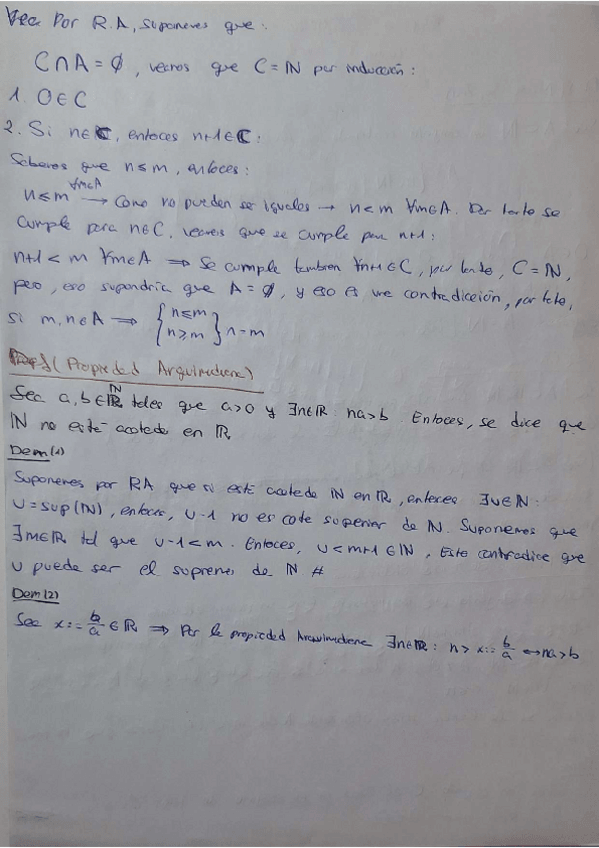 Por R.A, suponemos que:
C∩A = ∅, vemos que C = ℕ por inducción:
1. 0∈C
2. Si n∈C, entoces n+1∈C:
Sabemos que n≤m, entoces:
∀m∈A
n≤m → Como no pueden ser iguales → n<m ∀m∈A. Por tanto se
cumple para n∈C, veamos que se cumple para n+1:
n+1<m ∀m∈A ⇒ Se cumple tambien ∀n+1∈C, por tanto, C=ℕ,
pero, eso supondría que A=∅, y eso es una contradicción, por tato,
si m,n∈A ⇒ { n≤m
n≥m } n=m
(Propiedad Arquimediana)
ℕ
Sea a,b∈ℝ tales que a>0 y ∃n∈ℝ na>b. Entoces, se dice que
ℕ no esté acotado en ℝ
Dem(1)
Suponemos por RA que si esté acotado ℕ en ℝ, entonces ∃u∈ℕ:
u=sup(ℕ), entoces, u-1 no es cota superior de ℕ. Suponemos que
∃m∈ℝ tal que u-1<m. Entoces, u<m+1∈ℕ, Esto contradice que
u puede ser el supremo de ℕ #
Dem(2)
Sea x:=b/a ∈ℝ ⇒ Por la propiedad Arquimediana ∃n∈ℝ: n>x:=b/a ↔ na>b